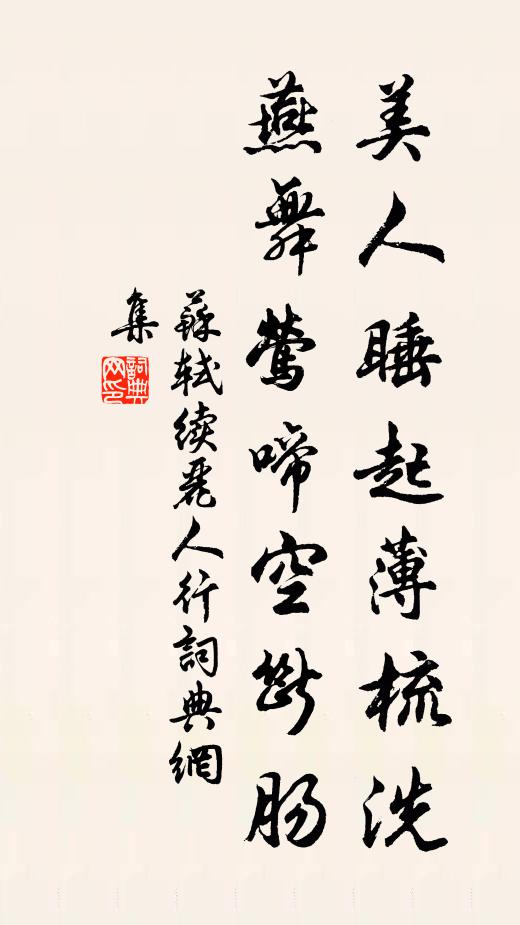 美人睡起薄梳洗
燕舞鶯啼空斷肠
蘇軾續麗人行詞典網
集
詞典
网印